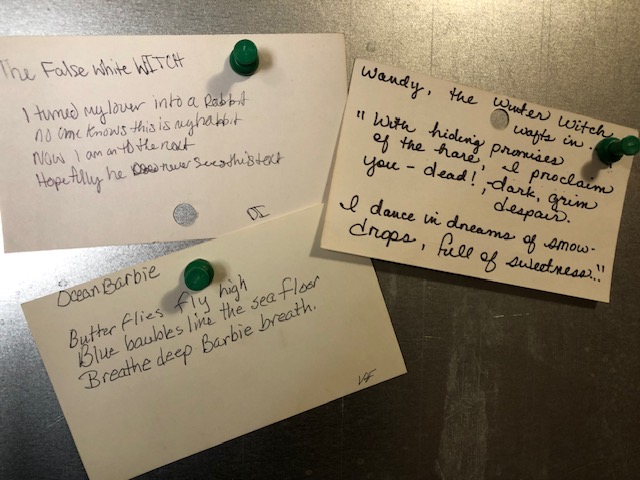 The False White WITCH
I turned my lover into a Rabbit
no one knows this is my habbit
Now I am onto the next
Hopefully he never sees this text
DI
Wandy, the Winter Witch
wafts in.
"With hiding promises
of the hare, I proclaim
you - dead!, dark, grim
despair.
I dance in dreams of snow-
drops, full of sweetness..."
Ocean Barbie
Butterflies fly high
Blue baubles line the sea floor
Breathe deep Barbie breath.